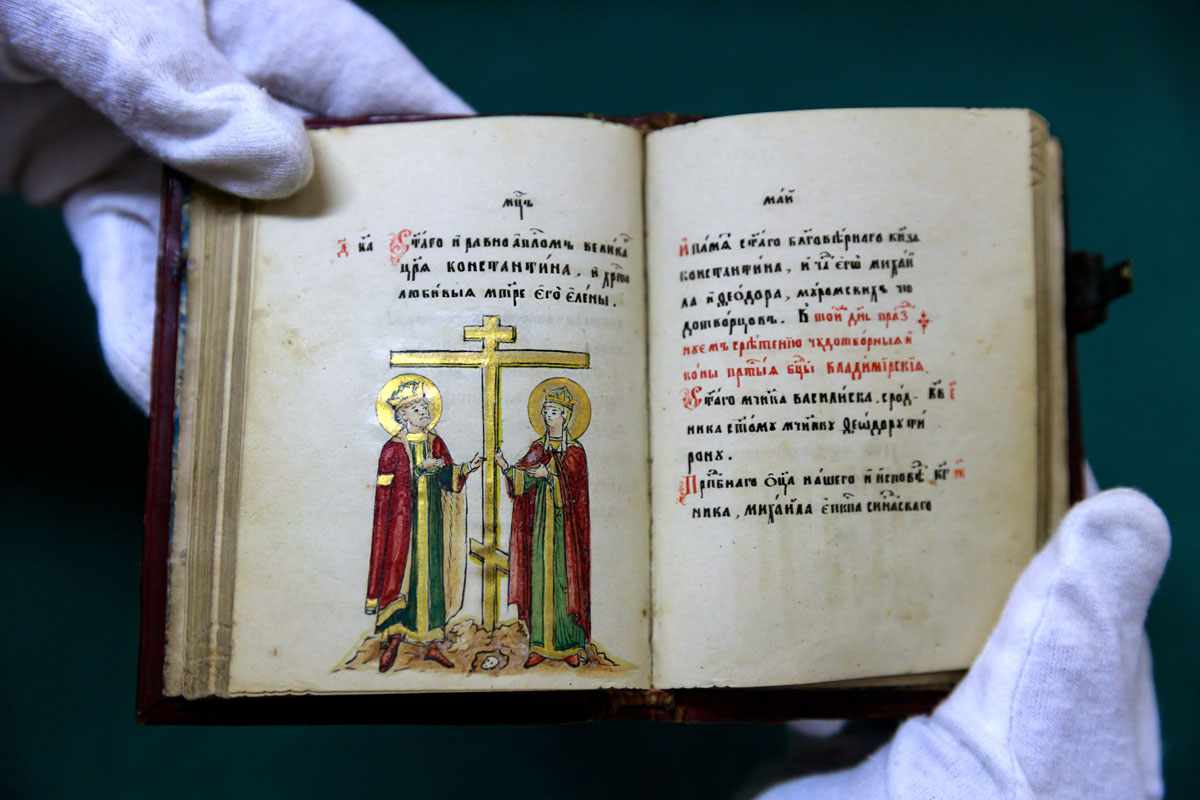 мцъ
д҃ ка Ст҃аго и҆ равноап҃ломъ велика
цр҃я константи́на, и҆ хрⷭ҇то
люби́выя мт҃ре є҆го̀ є҆ле́ны.
ма́й
И҆ па́мѧ ст҃а́го бл҃гове́рнаго кн҃зѧ
константи́на, и҆ ча̑ є҆гѡ̀ михаи
ла и҆ ѳео́дора, му́ромскихъ чю
дотво́рцовъ. В то́й дн҃ь праз
нуемъ сре́тенїю чудотво́рныѧ и҆
ко́ны прⷭ҇ты́ѧ бц҃ы влади́мїрскїѧ.
Ст҃а́го мч҃ика василиска, срод- кв і҃
ника ст҃ому мч҃нку ѳео́дору ти
рону.
Прⷣбнаго ѻ҆ц҃а на́шего и҆ и҆спове кг ж҃
ника, миха́ила є҆пⷭ҇кпа сина́скаго